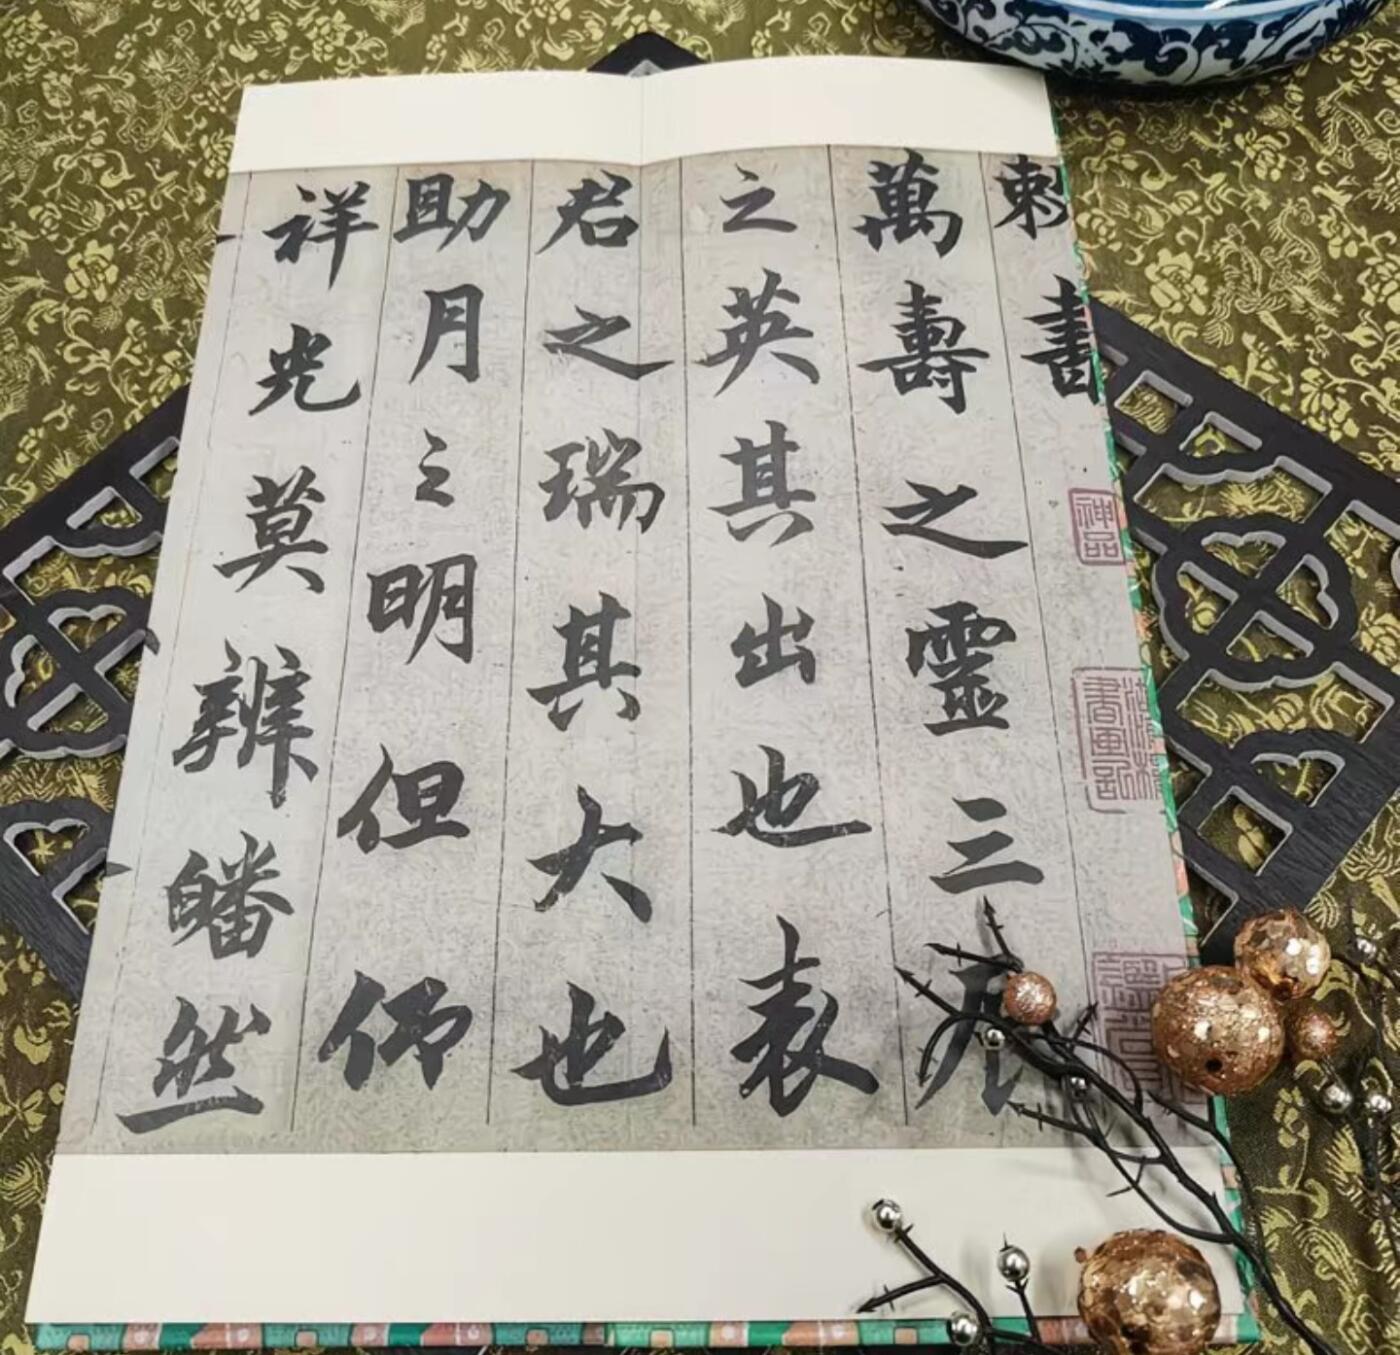 勅書
神品
萬壽之靈三元
之英其出也表
君之瑞其大也
助月之明但仰
祥光莫辨皤然